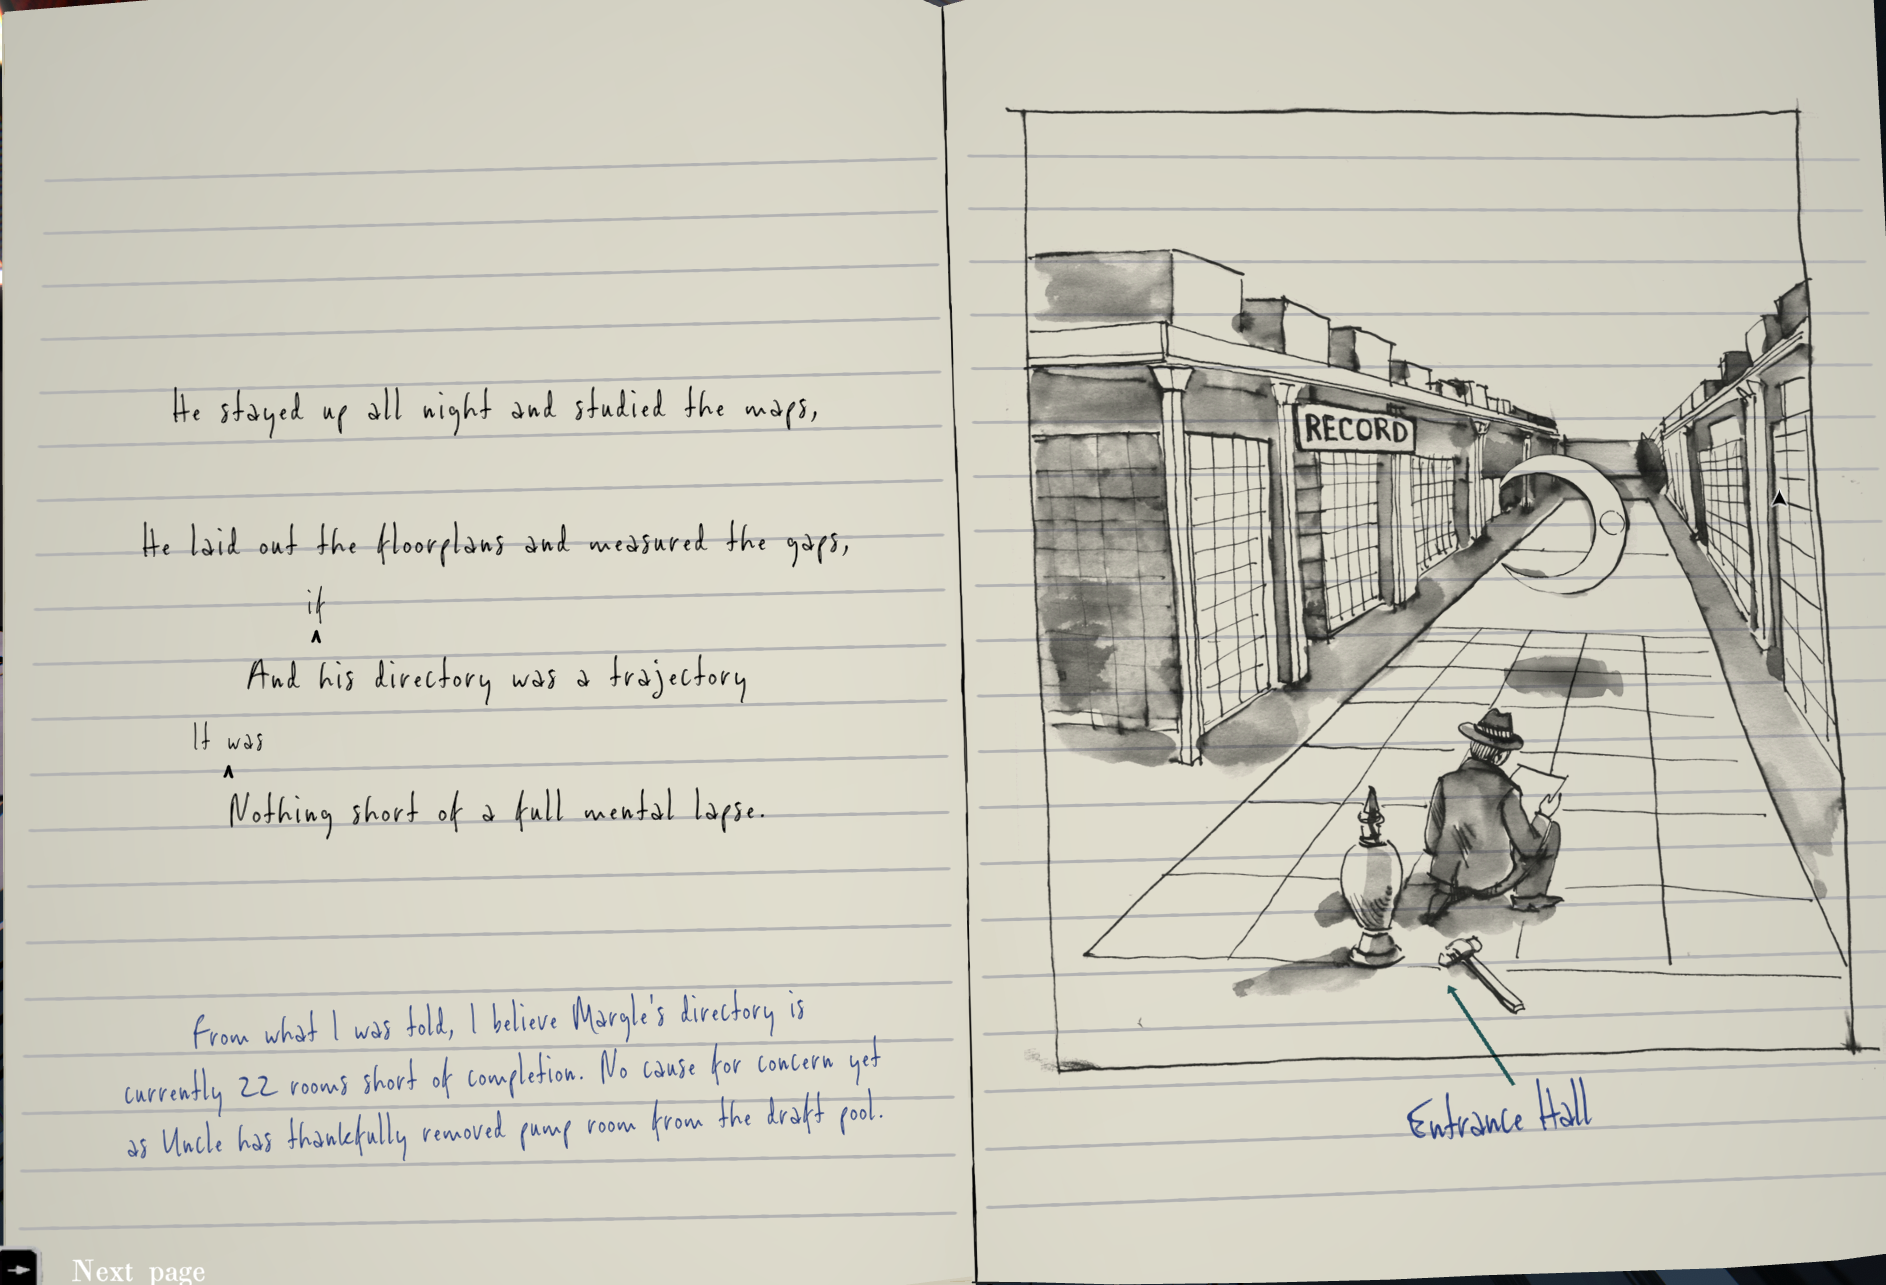 He stayed up all night and studied the maps,
He laid out the floorplans and measured the gaps,
if
^
And his directory was a trajectory
It was
^
Nothing short of a full mental lapse.
From what I was told, I believe Margle's directory is
currently 22 rooms short of completion. No cause for concern yet
as Uncle has thankfully removed pump room from the draft pool.
Next page
RECORD
Entrance Hall